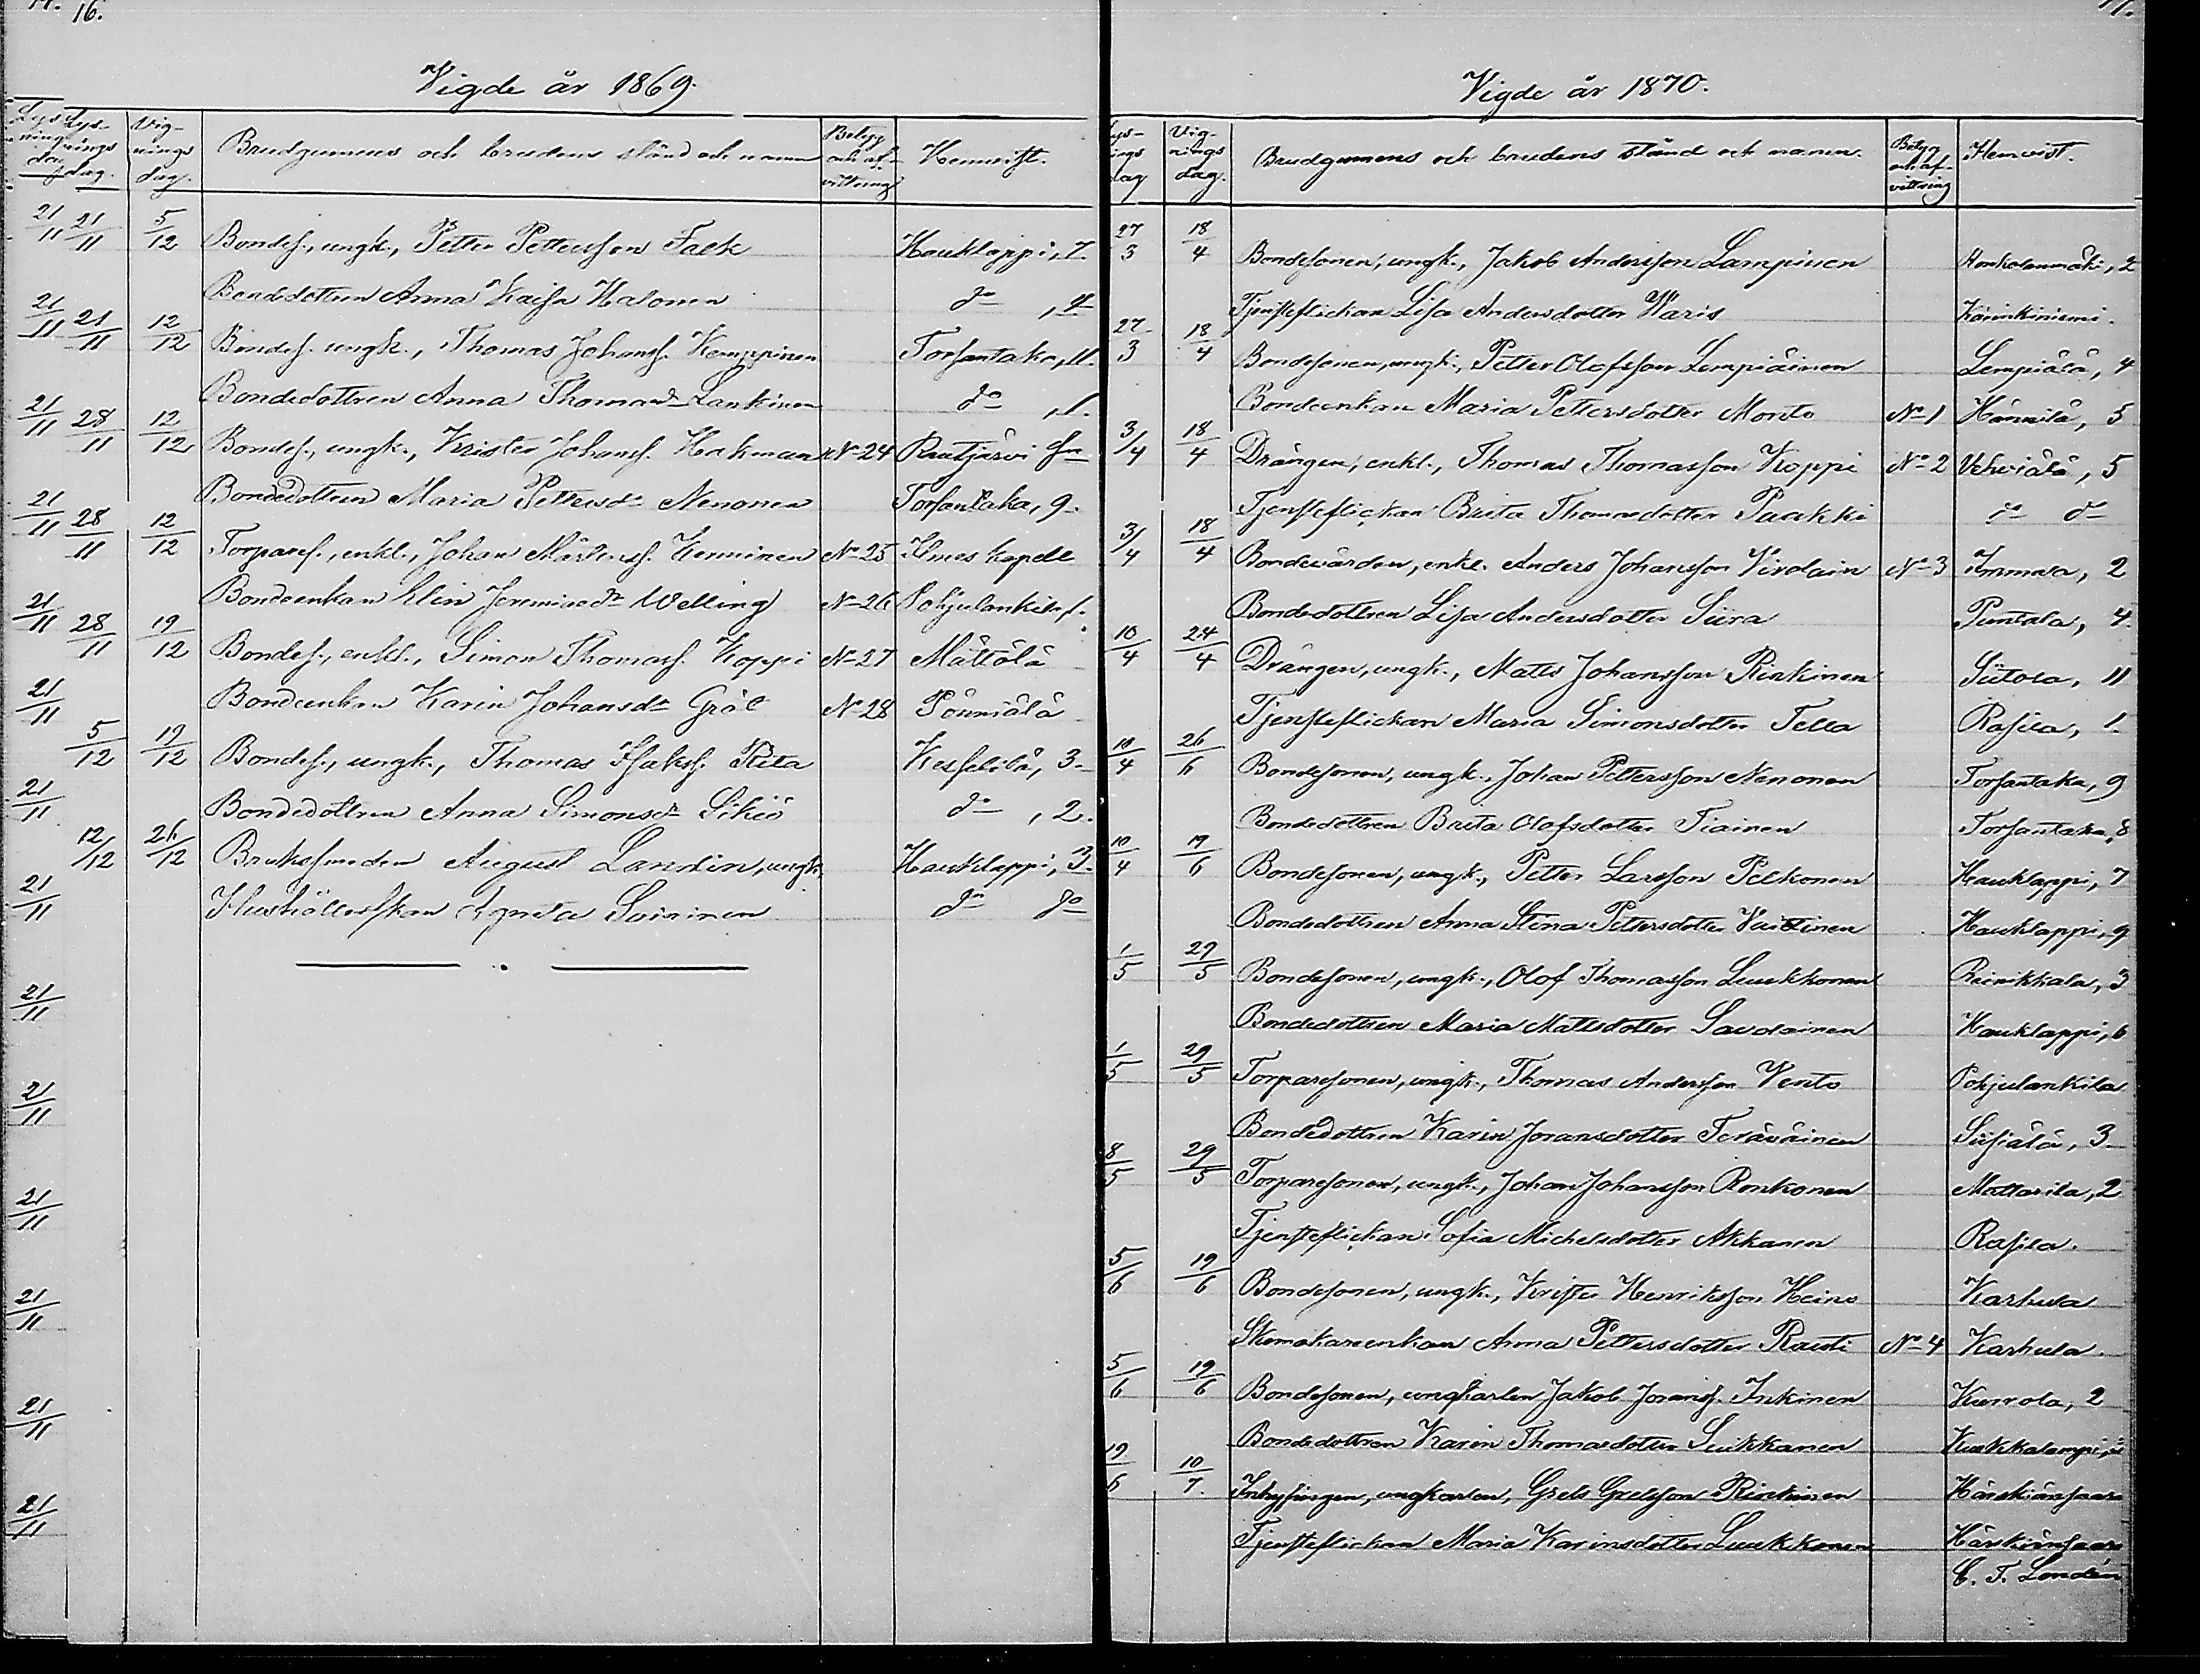 16.
Vigde år 1869.
Lysnings dag. Vignings dag. Brudgummens och brudens stånd och namn Belägg och afvittring Hemvist.
21/11 5/12 Bondes., ungk., Petter Pettersson Falk Hauklappi, 7.
Bondedottren Anna Kaisa Halonen do
21/11 12/12 Bondes. ungk., Thomas Johanss. Kemppinen Torsantaka, 11.
Bondedottren Anna Thomasdr Lankinen do , 1.
28/11 12/12 Bondes., ungk., Krister Johanss. Hakman No 24 Rautjärvi
Bondedottren Maria Pettersdr Nenonen Torsantaka, 9.
28/11 12/12 Torpares., enkl., Johan Mårtenss. Kenninen No 25 Ilmes kapell
Bondeenkan Elin Jeremiædr Welling No 26 Pohjulankila, 1.
28/11 19/12 Bondes., enkl., Simon Thomass. Koppi No 27 Mättälä
Bondeenkan Karin Johansdr Grål No 28 Pönniälä
5/12 19/12 Bondes., ungk., Thomas Isakss. Rita Kesselilä, 3.
Bondedottren Anna Simonsdr Sikiö do , 2.
12/12 26/12 Brukssmeden August Landin, ungk. Hauklappi, 3.
Hushållerskan Agneta Soininen do do
17.
Vigde år 1870.
Lysnings dag Vignings dag. Brudgummens och brudens stånd och namn. Belägg och afvittring Hemvist.
27/3 18/4 Bondesonen, ungk., Jakob Andersson Lampinen Honkalanmäki, 2
Tjensteflickan Lisa Andersdotter Waris Känkiniemi.
27/3 18/4 Bondesonen, ungk., Petter Olofsson Lempiäinen Lempiälä, 4
Bondeenkan Maria Pettersdotter Monto No 1 Hännilä, 5
3/4 18/4 Drängen, enkl., Thomas Thomasson Koppi No 2 Vehviälä, 5
Tjensteflickan Brita Thomasdotter Paakki do do
3/4 18/4 Bondevärden, enkl. Anders Johansson Virolain No 3 Immola, 2
Bondedottren Lisa Andersdotter Siira Puntala, 4.
10/4 24/4 Drängen, ungk., Matts Johansson Rinkinen Siitola, 11
Tjensteflickan Maria Simonsdotter Tella Rasila, 1.
10/4 26/6 Bondesonen, ungk., Johan Pettersson Nenonen Torsantaka, 9
Bondedottren Brita Olofsdotter Tiainen Torsantaka, 8
10/4 19/6 Bondesonen, ungk., Petter Larsson Pelkonen Hauklappi, 7
Bondedottren Anna Stina Pettersdotter Vaittinen Hauklappi, 9
1/5 29/5 Bondesonen, ungk., Olof Thomasson Luukkonen Reinikkala, 3
Bondedottren Maria Mattsdotter Savolainen Hauklappi, 6
1/5 29/5 Torparesonen, ungk., Thomas Andersson Vento Pohjulankila
Bondedottren Karin Joransdotter Teräväinen Siisiälä, 3.
8/5 29/5 Torparesonen, ungk., Johan Johansson Ronkonen Mattarila, 2
Tjensteflickan Sofia Michelsdotter Akkanen Rasila.
5/6 19/6 Bondesonen, ungk., Krister Henriksson Heino Karhula
Skomakareenkan Anna Pettersdotter Rausti No 4 Karhula.
5/6 19/6 Bondesonen, ungkarlen Jakob Joranss. Inkinen Kurrola, 2
Bondedottren Karin Thomasdotter Suikkanen
19/6 10/7. Inhysingen, ungkarlen, Grels Grelsson Rinkinen Härskiänsaari
Tjensteflickan Maria Karinsdotter Luukkonen Härskiänsaari
C. T. Londén